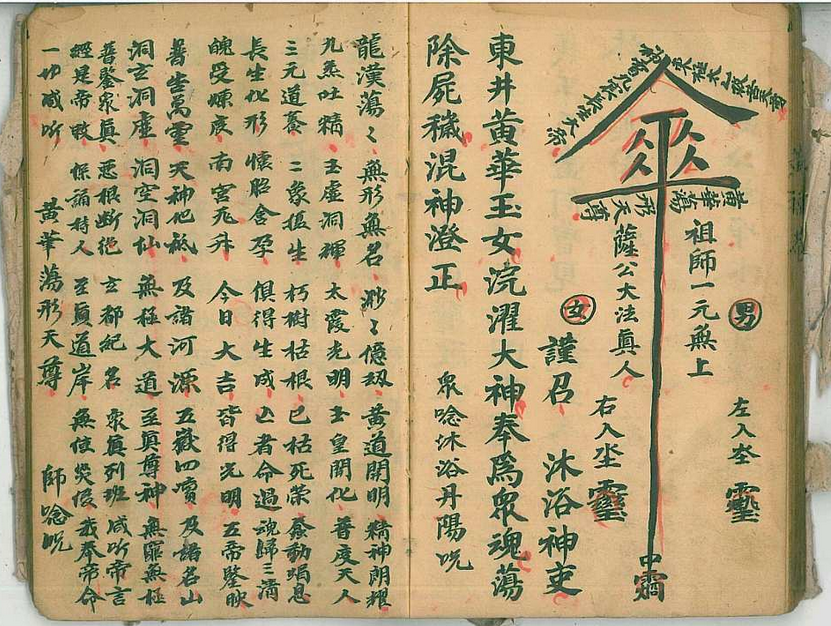 男
左入坐
祖師一元無上
黃華蕩
形天尊
薩公大法真人
右入坐
女
中
謹召 沐浴神吏
東井黃華玉女浣濯大神奉爲眾魂蕩
除屍穢混神澄正 眾唸沐浴丹陽咒
龍漢蕩〻 無形無名 渺〻億劫 黃道開明 精神朗耀
九炁吐精 玉虛洞輝 太霞光明 玉皇開化 普度天人
三元道養 二象援生 朽樹枯根 已枯死榮 蠢動蝸息
長生化形 懷胎含孕 俱得生成 亡者命過 魂歸三清
魄受煉度 南宮飛升 今日大吉 皆得光明 五帝鑒映
普告萬靈 天神地祇 及諸河源 五嶽四瀆 及諸名山
洞玄洞虛 洞空洞仙 無極大道 至真尊神 無鞅無極
普鑒眾真 惡根斷絕 玄都紀名 眾真列班 咸听帝言
經是帝敕 保誦持人 至真道岸 無使災侵 我奉帝命
一切咸听 黃華蕩形天尊 師唸咒